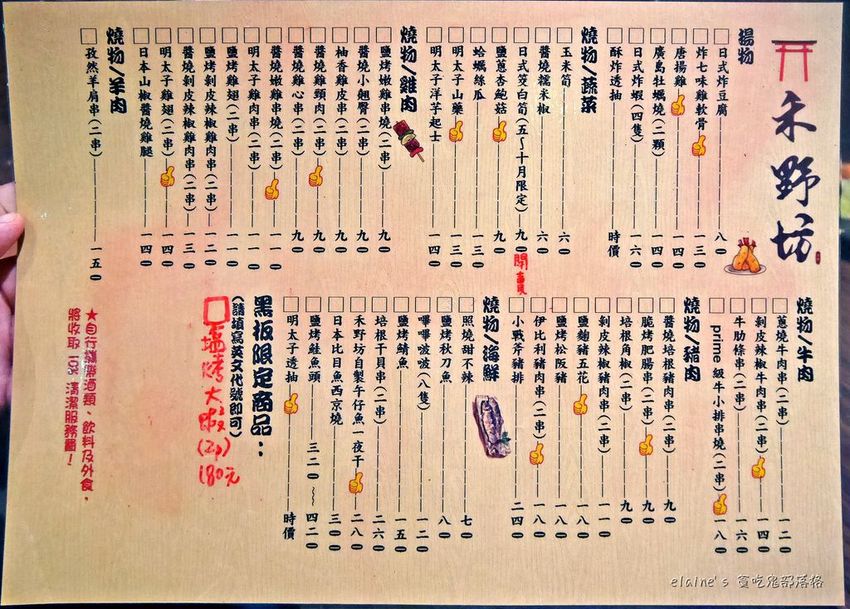 禾野坊
揚物
日式炸豆腐 八0
炸七味雞軟骨 一三0
唐揚雞 一四0
廣島牡蠣燒(二顆) 一四0
日式炸蝦(四隻) 一六0
酥炸透抽 時價
燒物/蔬菜
玉米筍 六0
醬燒糯米椒 六0
日式茭白筍(五~十月限定) 九0 開賣
鹽蔥杏鮑菇 九0
蛤蠣絲瓜 一三0
明太子山藥 一三0
明太子洋芋起士 一四0
燒物/雞肉
鹽烤嫩雞串燒(二串) 九0
醬燒小翹臀(二串) 九0
柚香雞皮串(二串) 九0
醬燒雞頸肉(二串) 九0
醬燒雞心串(二串) 九0
醬燒嫩雞串燒(二串) 九0
明太子雞肉串(二串) 一一0
鹽烤雞翅(二串) 一一0
鹽烤剝皮辣椒雞肉串(二串) 一二0
醬燒剝皮辣椒雞肉串(二串) 一三0
明太子雞翅(二串) 一四0
日本山椒醬燒雞腿 一四0
燒物/羊肉
孜然羊肩串(二串) 一五0
燒物/牛肉
蔥燒牛肉串(二串) 一二0
剝皮辣椒牛肉串(二串) 一四0
牛肋條串(二串) 一六0
prime級牛小排串燒(二串) 一八0
燒物/豬肉
醬燒培根豬肉串(二串) 九0
脆烤肥腸串(二串) 九0
培根角椒(二串) 九0
剝皮辣椒豬肉串(二串) 一一0
鹽麴豬五花 一八0
鹽烤松阪豬 一八0
伊比利豬肉串(二串) 一八0
小戰斧豬排 二四0
燒物/海鮮
照燒甜不辣 七0
鹽烤秋刀魚 八0
嗶嗶啵啵(八隻) 一二0
鹽烤鯖魚 一五0
培根干貝串(二串) 二六0
禾野坊自製午仔魚一夜干 二八0
日本比目魚西京燒 三00
鹽烤鮭魚頭 三二0~四二0
明太子透抽 時價
黑板限定商品：
(請填寫英文代號即可)
塩烤大蝦(2p)180元
★自行攜帶酒類、飲料及外食，
將收取10%清潔服務費！
elaine's 貪吃鬼部落格